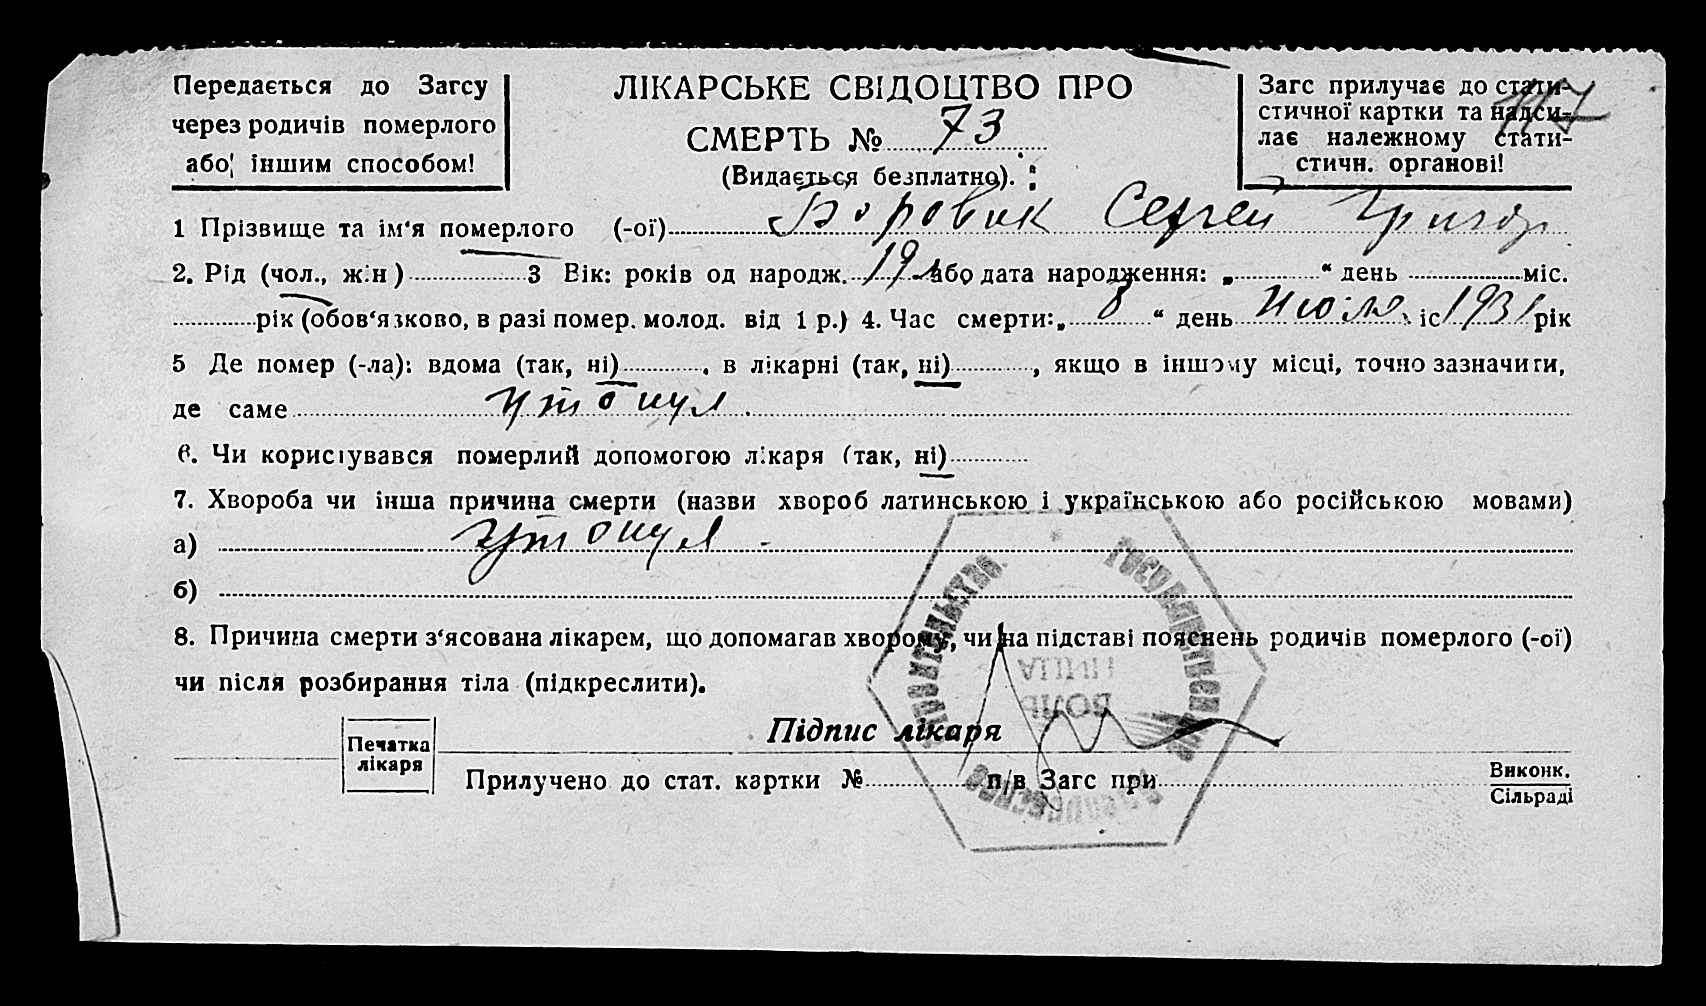 Передається до Загсу
через родичів померлого
або іншим способом!
ЛІКАРСЬКЕ СВІДОЦТВО ПРО
СМЕРТЬ № 73
(Видається безплатно).
Загс прилучає до стати-
стичної картки та надси-
лає належному стати-
стичн. органові!
117
1 Прізвище та ім'я померлого (-ої) Боровик Сергей Григор
2. Рід (чол., ж.н) 3 Вік: років од народж. 19 л або дата народження: „ “ день міс.
рік (обов'язково, в разі помер. молод. від 1 р.) 4. Час смерти: „ 8 “ день Июля іс 1931 рік
5 Де помер (-ла): вдома (так, ні) , в лікарні (так, ні) , якщо в іншому місці, точно зазначити,
де саме утонул.
6. Чи користувався померлий допомогою лікаря (так, ні)
7. Хвороба чи інша причина смерти (назви хвороб латинською і українською або російською мовами)
а) утонул -
б)
8. Причина смерти з'ясована лікарем, що допомагав хворому, чи на підставі пояснень родичів померлого (-ої)
чи після розбирання тіла (підкреслити).
Печатка
лікаря
Підпис лікаря
Прилучено до стат. картки № п/в Загс при Виконк.
Сільраді